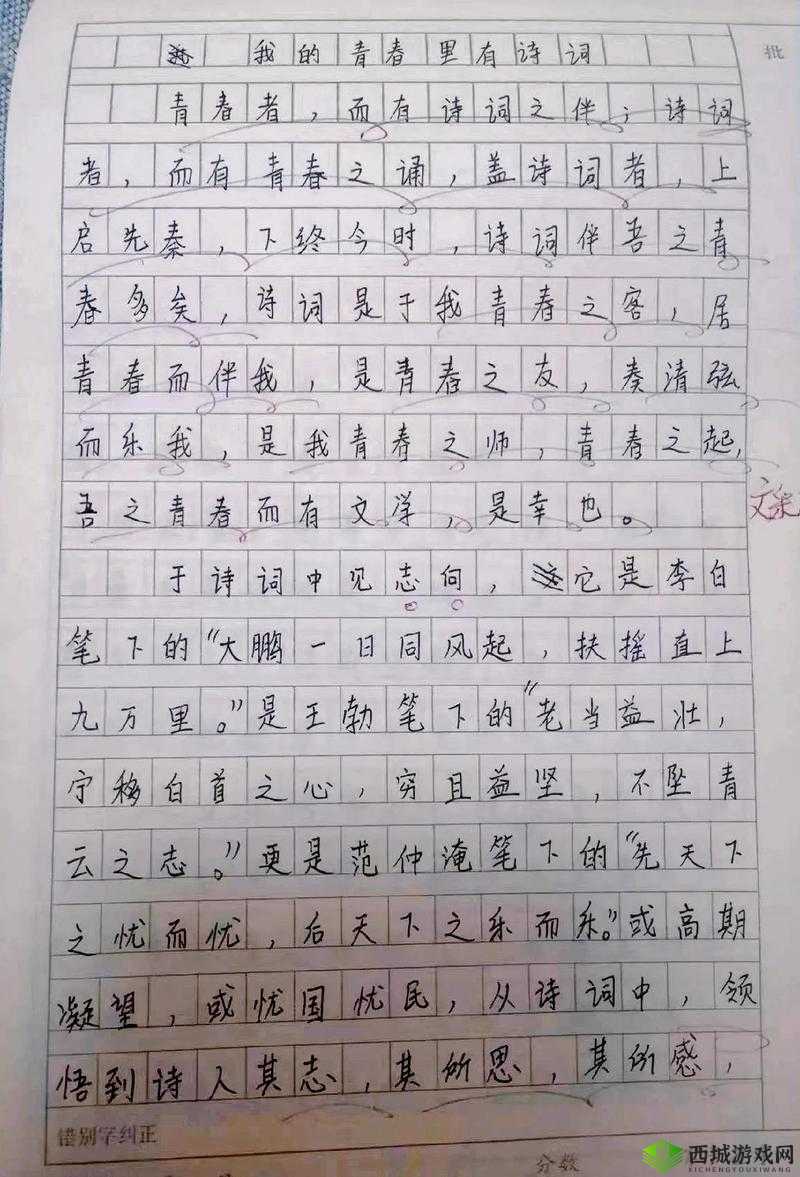 批
我的青春里有诗词
青春者，而有诗词之伴；诗词
者，而有青春之诵，盖诗词者，上
启先秦，下终今时，诗词伴吾之青
春多矣，诗词是于我青春之客，居
青春而伴我，是青春之友，奏清弦
而乐我，是我青春之师，青春之起，
吾之青春而有文学，是幸也。
文采
于诗词中见志向，它是李白
笔下的“大鹏一日同风起，扶摇直上
九万里。”是王勃笔下的“老当益壮，
宁移白首之心，穷且益坚，不坠青
云之志。”更是范仲淹笔下的“先天下
之忧而忧，后天下之乐而乐。”或高期
凝望，或忧国忧民，从诗词中，领
悟到诗人其志，其所思，其所感，
错别字纠正
分数
西城游戏网
XICHENGYOUXIWANG.COM